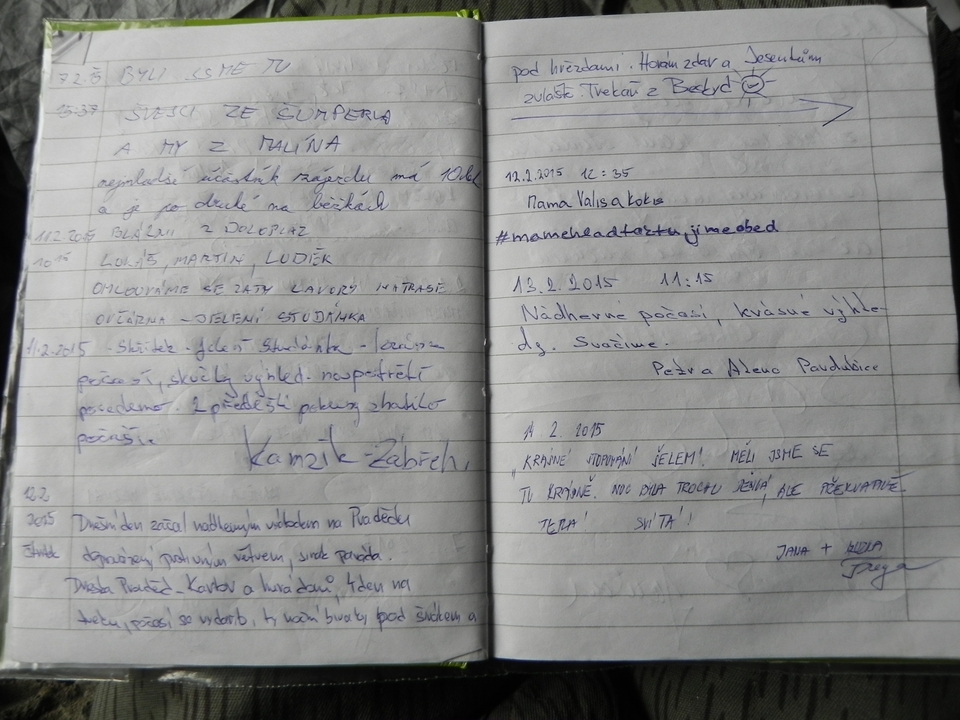 7.2.15 BYLI JSME TU
15:37 ŠVEJCI ZE ŠUMPERKA
A MY Z MALÍNA
nejmladší účastník zájezdu má 10 let
a je po druhé na běžkách
11.2.2015 BLÁZNI Z DOLOPLAZ
10 15 LUKÁŠ, MARTIN, LUDĚK
OMLOUVÁME SE ZA TY LAVORY NA TRASE
OVČÁRNA - JELENÍ STUDÁNKA
11.2.2015 - Skřítek - Jelení Studánka - krásné
počasí, skvělý výhled.
posedemo. 2 předešlí pokusy zhatilo
počasí.
Kamzík - Zábřeh
12.2
2015 Dnešní den začal nádherným východem na Pradědu
čtvrtek doprovázený protivným větrem, jinak paráda.
Dneska Praděd - Karlov a hurá domů, 4 den na
treku, počasí se vydařilo, ty noční bivaky pod širákem a
pod hvězdami. Horám zdar a Jeseníkům
zvlášť. Trekaři z Beskyd
12.2.2015 12:35
Mama Valis a Kokis
#mameheadtortu,jimeobed
13.2.2015 11:15
Nádherné počasí, krásné výhle-
dy. Svačíme.
Petr a Alena Pardubice
14 2. 2015
KRÁSNÉ STOPOVÁNÍ JELEM! MĚLI JSME SE
TU KRÁSNĚ. NOC BYLA TROCHU DĚSIVÁ, ALE PŘEKVAPIVĚ
TEPLÁ! SVÍTÁ!
JANA +